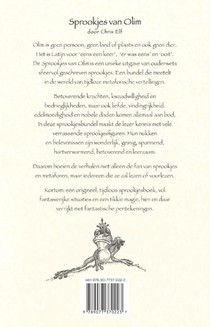 Sprookjes van Olim
door Chris Elf
Olim is geen persoon, geen land of plaats en ook geen dier.
Het is Latijn voor 'eens een keer', 'er was eens' en 'ooit'.
De Sprookjes van Olim is een unieke uitgave van ouderwets
sfeervol geschreven sprookjes. Een bundel die meetelt in
de wereld van tijdloze metaforische vertellingen.
Betoverende krachten, kwaadwilligheid en
bedrieglijkheden, maar ook liefde, vindingrijkheid,
edelmoedigheid en nobele daden komen allemaal aan bod.
In deze sprookjesbundel maakt de lezer kennis met vele
verrassende sprookjesfiguren. Hun nukken
en belevenissen zijn wonderlijk, geestig, spannend,
hartverwarmend, betoverend en leerzaam.
Daarom horen de verhalen niet alleen de fan van sprookjes
en metaforen, maar iedereen die ze zal lezen of voorlezen.
Kortom: een origineel, tijdloos sprookjesboek, vol
fantasierijke situaties en een tikkie magie, hier en daar
verrijkt met fantastische pentekeningen.